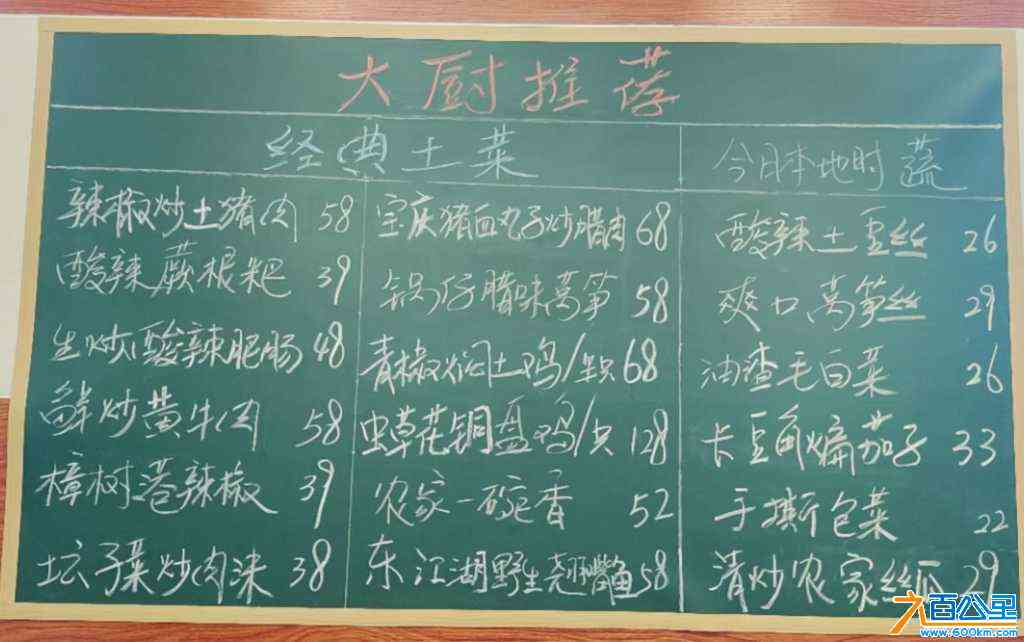 大厨推荐
经典土菜
辣椒炒土猪肉 58
酸辣蕨根粑 39
生炒酸辣肥肠 48
鲜炒黄牛肉 58
樟树港辣椒 39
坛子菜炒肉沫 38
宝庆猪血丸子炒腊肉 68
锅仔腊味莴笋 58
青椒焖土鸡/半只 68
虫草花铜盘鸡/只 128
农家一碗香 52
东江湖野生翘嘴鱼 58
今日本地时蔬
酸辣土豆丝 26
爽口莴笋丝 29
油渣毛白菜 26
卡豆角煸茄子 33
手撕包菜 22
清炒农家丝瓜 29
六百公里
www.600km.com